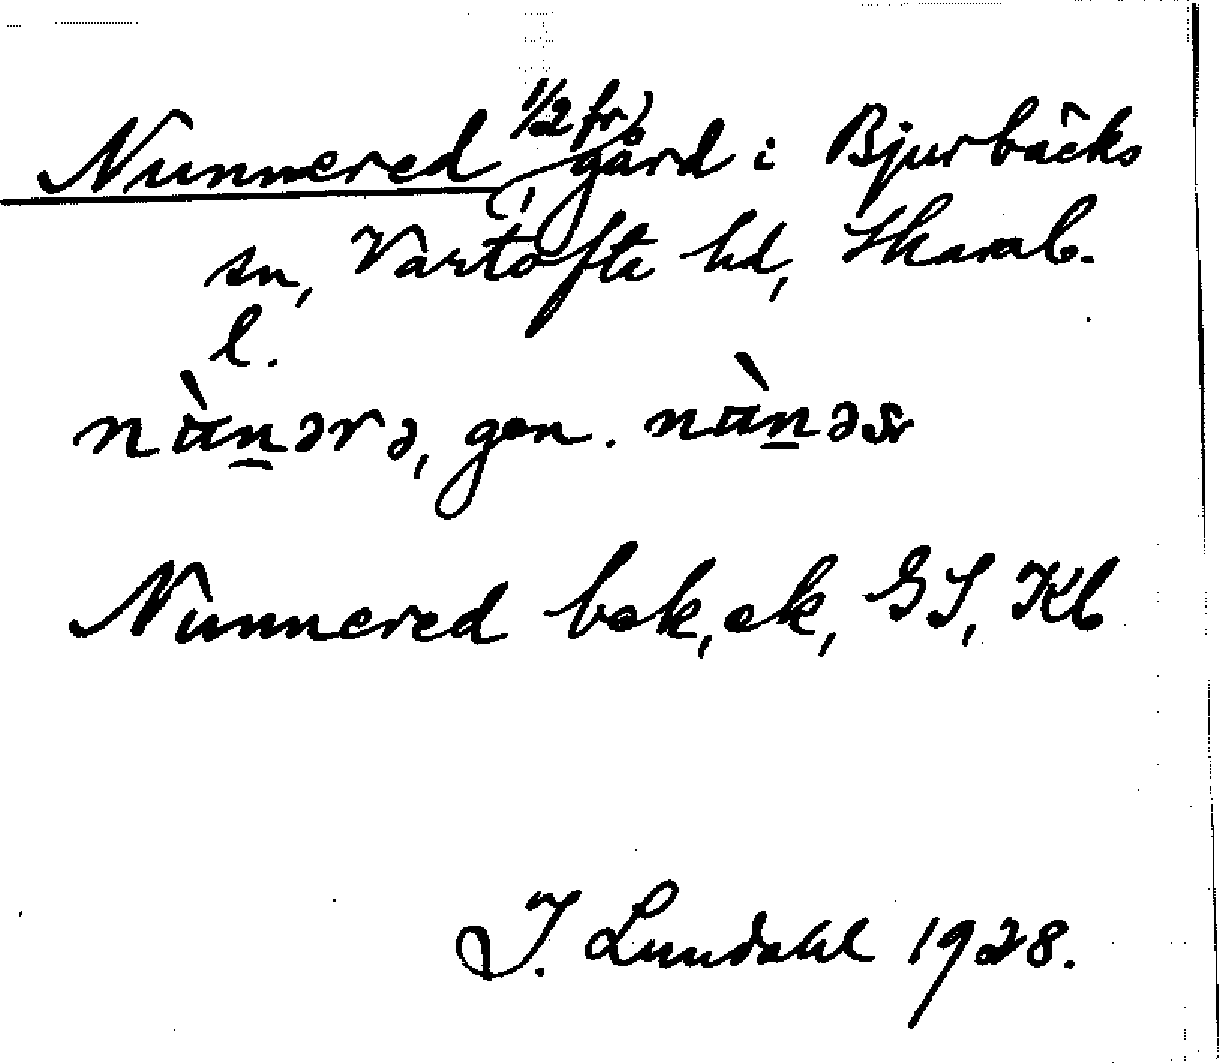 Nunnered, 1/2 fr, gård i Bjurbäcks
sn, Vartofta hd, Skarab.
l.
nànərə, gen. nànəs
Nunnered bok, ek, GS, Kb
I. Lundahl 1928.